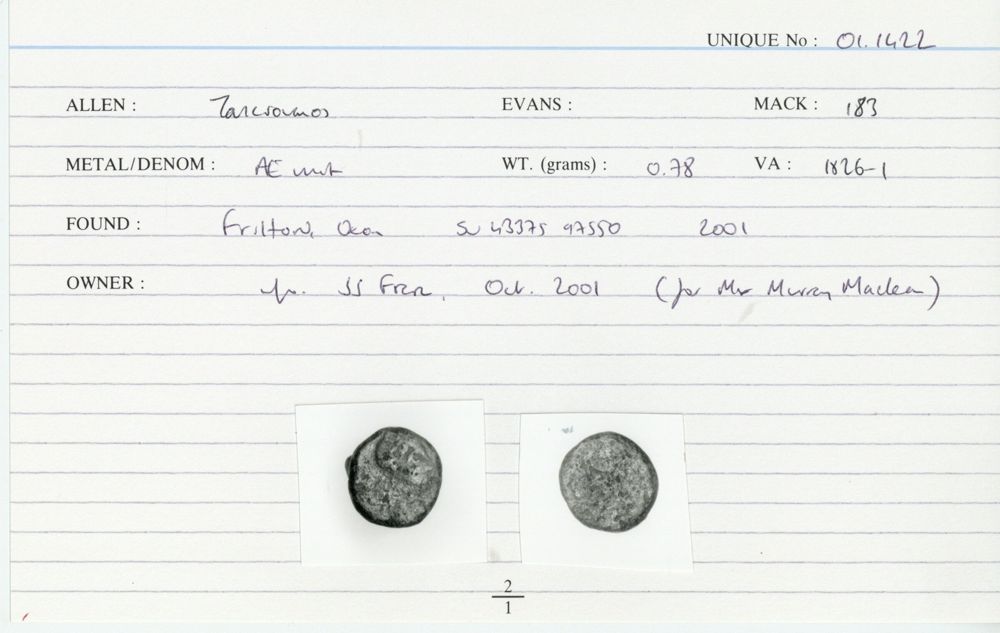 UNIQUE No : 01.1422
ALLEN : Tasciovanos EVANS : MACK : 183
METAL/DENOM : AE unit WT. (grams) : 0.78 VA : 1826-1
FOUND : Frilford, Oxon SU 43375 97550 2001
OWNER : Oct. 2001 (for Mr Murray Maclean)
2
1